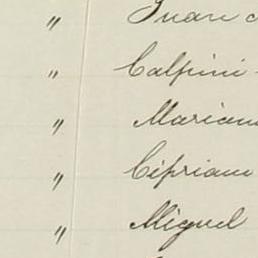 " Juan
" Calpini
" Mariano
" Ciprian
" Miguel